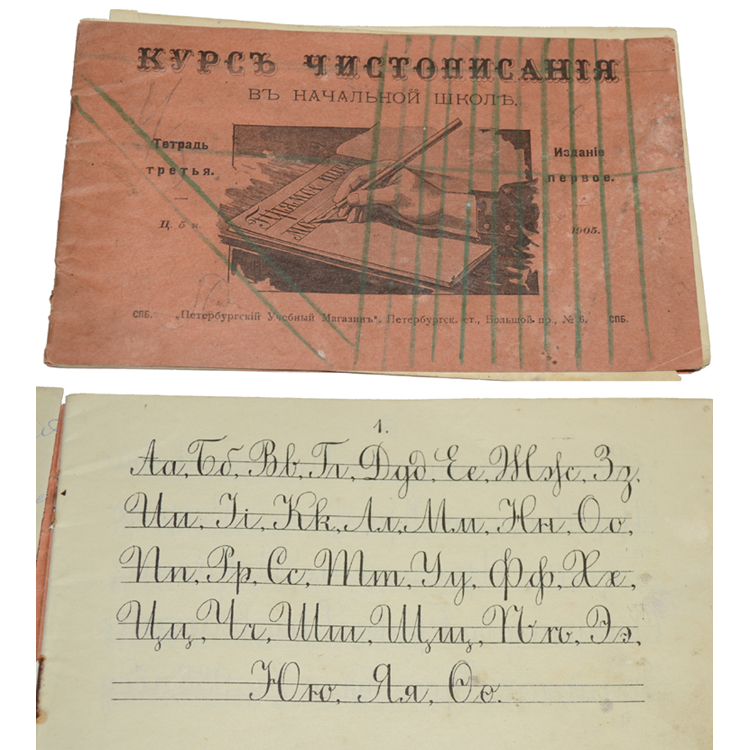 КУРСЪ ЧИСТОПИСАНІЯ
ВЪ НАЧАЛЬНОЙ ШКОЛѢ.
Тетрадь
третья.
Ц.
Изданіе
первое.
1905.
СПБ. „Петербургскій Учебный Магазинъ", Петербургск. ст., Большой пр., № 6. СПБ.
1.
Аа, Бб, Вв, Гг, Ддд, Ее, Жж, Зз,
Ии, Іі, Кк, Лл, Мм, Нн, Оо,
Пп, Рр, Сс, Тт, Уу, Фф, Хх,
Цц, Чч, Шш, Щщ, Ѣѣ, Ээ,
Юю, Яя, Ѳѳ.